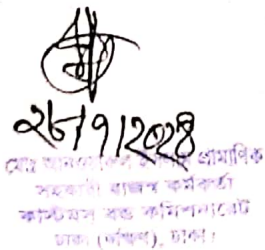 ২৮/৭/২০২৪
মোঃ প্রামাণিক
সহকারী রাজস্ব কর্মকর্তা
কাস্টমস বন্ড কমিশনারেট
ঢাকা (দক্ষিণ), ঢাকা।